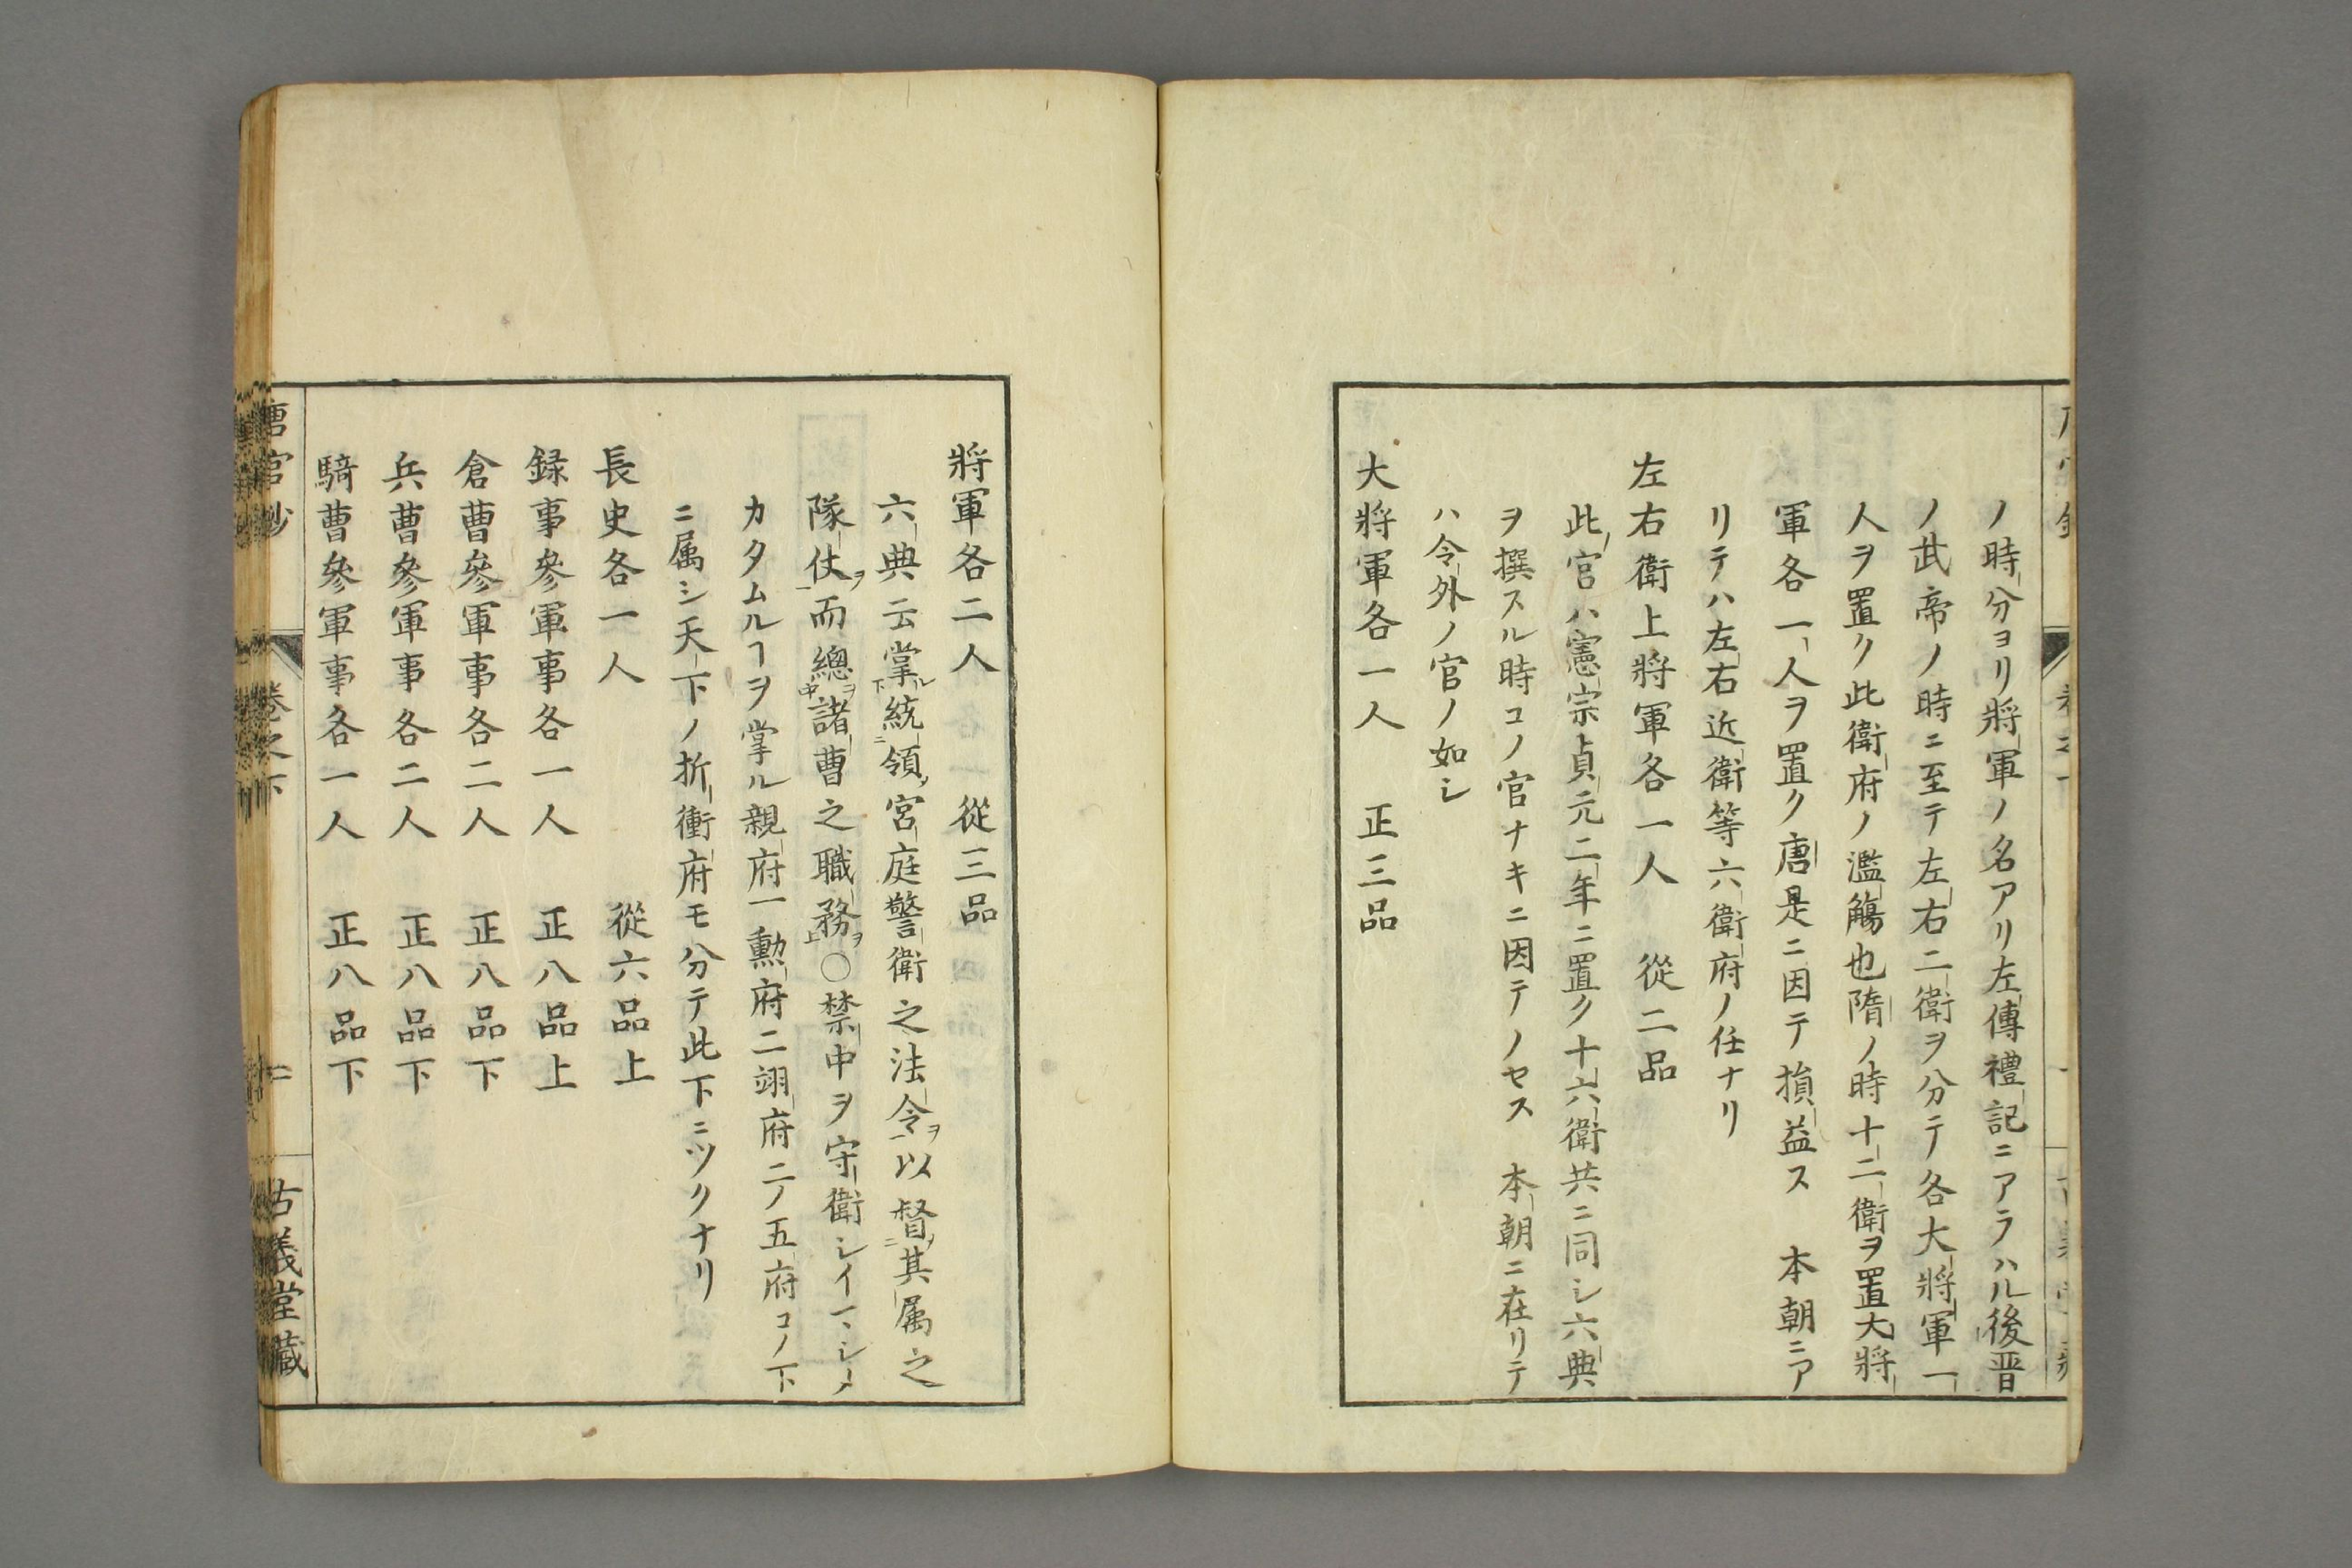 ノ時分ヨリ將軍ノ名アリ左傳禮記ニアラハル後晋
ノ武帝ノ時ニ至テ左右二衛ヲ分テ各大將軍一
人ヲ置ク此衛府ノ濫觴也隋ノ時十二衛ヲ置大將
軍各一人ヲ置ク唐是ニ因テ損益ス　本朝ニア
リテハ左右近衛等六衛府ノ任ナリ
左右衛上將軍各一人　從二品
此官ハ憲宗貞元二年ニ置ク十六衛共ニ同シ六典
ヲ撰スル時コノ官ナキニ因テノセス　本朝ニ在リテ
ハ令外ノ官ノ如シ
大將軍各一人　正三品
將軍各二人　從三品
六典云掌ル下統二領ノ宮庭警衛之法令ヲ一以督二ノ其属之
隊仗ヲ一而總中ヲ諸曹之職務ヲ上○禁中ヲ守衛シイマシメ
カタムルヿヲ掌ル親府一勲府二翊府二ノ五府コノ下
ニ属シ天下ノ折衝府モ分テ此下ニツクナリ
長史各一人　從六品上
録事參軍事各一人　正八品上
倉曹參軍事各二人　正八品下
兵曹參軍事各二人　正八品下
騎曹參軍事各一人　正八品下
唐官鈔　卷之下　二　古義堂藏